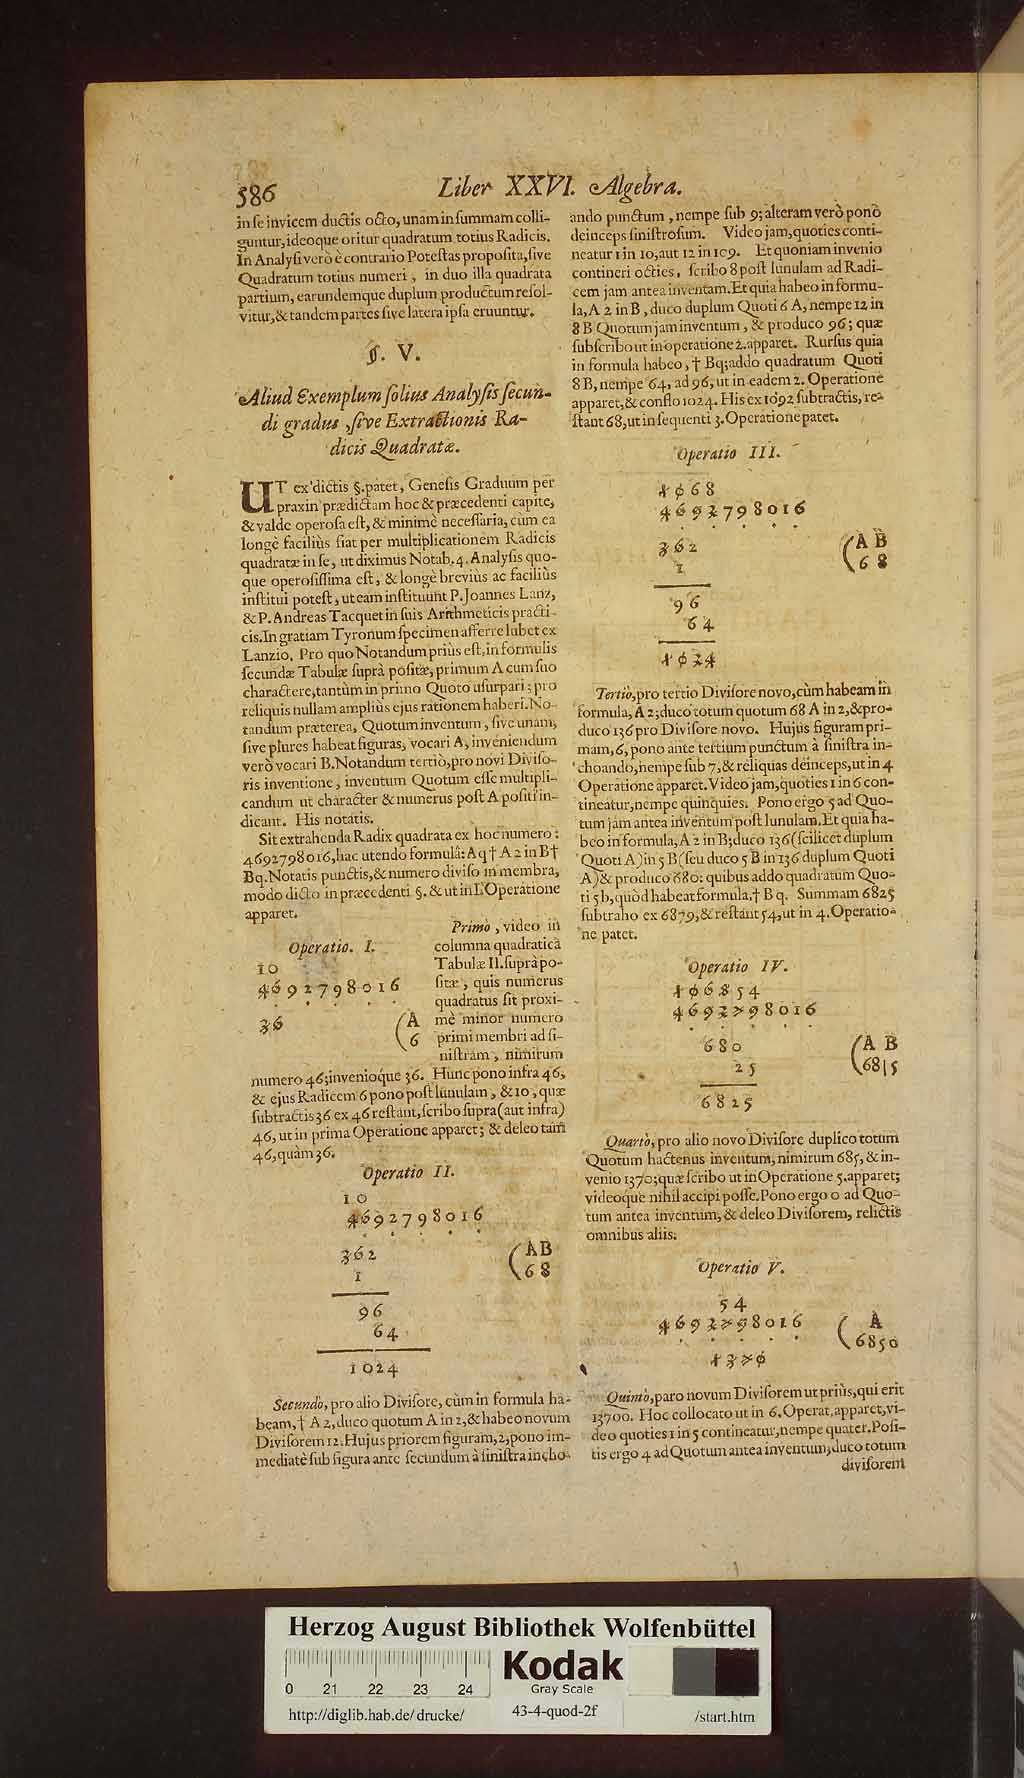 586
Liber XXVI. Algebra.
in se invicem ductis octo, unam in summam colli-
guntur, ideoque oritur quadratum totius Radicis.
In Analysi verò è contrario Potestas proposita, sive
Quadratum totius numeri, in duo illa quadrata
partium, earundemque duplum productum resol-
vitur, & tandem partes sive latera ipsa eruuntur.
§. V.
Aliud Exemplum solius Analysis secun-
di gradus, sive Extractionis Ra-
dicis Quadratæ.
UT ex dictis §. patet, Genesis Graduum per
praxin prædictam hoc & præcedenti capite,
& valde operosa est, & minimè necessaria, cùm ea
longè faciliùs fiat per multiplicationem Radicis
quadratæ in se, ut diximus Notab. 4. Analysis quo-
que operosissima est, & longè brevius ac faciliùs
institui potest, ut eam instituunt P. Joannes Lanz,
& P. Andreas Tacquet in suis Arithmeticis practi-
cis. In gratiam Tyronum specimen afferre lubet ex
Lanzio. Pro quo Notandum priùs est, in formulis
secundæ Tabulæ suprà positæ, primum A cum suo
charactere, tantùm in primo Quoto usurpari; pro
reliquis nullam ampliùs ejus rationem haberi. No-
tandum præterea, Quotum inventum, sive unam,
sive plures habeat figuras, vocari A, inveniendum
verò vocari B. Notandum tertiò, pro novi Diviso-
ris inventione, inventum Quotum esse multipli-
candum ut character & numerus post A positi in-
dicant. His notatis.
Sit extrahenda Radix quadrata ex hoc numero:
4692798016, hac utendo formulâ: Aq † A 2 in B †
Bq. Notatis punctis, & numero diviso in membra,
modo dicto in præcedenti §. & ut in I. Operatione
apparet.
Operatio. I.
10
4692798016
36
(A
6
Primò, video in
columna quadraticâ
Tabulæ II. suprà po-
sitæ, quis numerus
quadratus sit proxi-
mè minor numero
primi membri ad si-
nistram, nimirum
numero 46; invenioque 36. Hunc pono infra 46,
& ejus Radicem 6 pono post lunulam, & 10, quæ
subtractis 36 ex 46 restant, scribo supra (aut infra)
46, ut in prima Operatione apparet; & deleo tam
46, quàm 36.
Operatio II.
10
4692798016
362
1
(A B
6 8
96
64
1024
Secundò, pro alio Divisore, cùm in formula ha-
beam, † A 2, duco quotum A in 2, & habeo novum
Divisorem 12. Hujus priorem figuram, 2, pono im-
mediatè sub figura ante secundum à sinistra incho-
ando punctum, nempe sub 9; alteram verò pono
deinceps sinistrosum. Video jam, quoties conti-
neatur 1 in 10, aut 12 in 109. Et quoniam invenio
contineri octies, scribo 8 post lunulam ad Radi-
cem jam antea inventam. Et quia habeo in formu-
la, A 2 in B, duco duplum Quoti 6 A, nempe 12 in
8 B Quotum jam inventum, & produco 96; quæ
subscribo ut in operatione 2. apparet. Rursus quia
in formula habeo, † Bq; addo quadratum Quoti
8 B, nempe 64, ad 96, ut in eadem 2. Operatione
apparet, & conflo 1024. His ex 1092 subtractis, re-
stant 68, ut in sequenti 3. Operatione patet.
Operatio III.
1068
4692798016
362
1
(A B
6 8
96
64
1024
Tertiò, pro tertio Divisore novo, cùm habeam in
formula, A 2; duco totum quotum 68 A in 2, & pro-
duco 136 pro Divisore novo. Hujus figuram pri-
mam, 6, pono ante tertium punctum à sinistra in-
choando, nempe sub 7, & reliquas deinceps, ut in 4
Operatione apparet. Video jam, quoties 1 in 6 con-
tineatur, nempe quinquies. Pono ergo 5 ad Quo-
tum jam antea inventum post lunulam. Et quia ha-
beo in formula, A 2 in B; duco 136 (scilicet duplum
Quoti A) in 5 B (seu duco 5 B in 136 duplum Quoti
A) & produco 680: quibus addo quadratum Quo-
ti 5 b, quòd habeat formula, † B q. Summam 6825
subtraho ex 6879, & restant 54, ut in 4. Operatio-
ne patet.
Operatio IV.
106854
4692798016
680
25
(A B
68|5
6825
Quartò, pro alio novo Divisore duplico totum
Quotum hactenus inventum, nimirum 685, & in-
venio 1370; quæ scribo ut in Operatione 5. apparet;
videoque nihil accipi posse. Pono ergo 0 ad Quo-
tum antea inventum, & deleo Divisorem, relictis
omnibus aliis.
Operatio V.
54
4692798016
1370
( A
6850
Quintò, paro novum Divisorem ut priùs, qui erit
13700. Hoc collocato ut in 6. Operat. apparet, vi-
deo quoties 1 in 5 contineatur, nempe quater. Posi-
tis ergo 4 ad Quotum antea inventum, duco totum
divisorem
Herzog August Bibliothek Wolfenbüttel
0 21 22 23 24
Kodak
Gray Scale
http://diglib.hab.de/drucke/
43-4-quod-2f
/start.htm